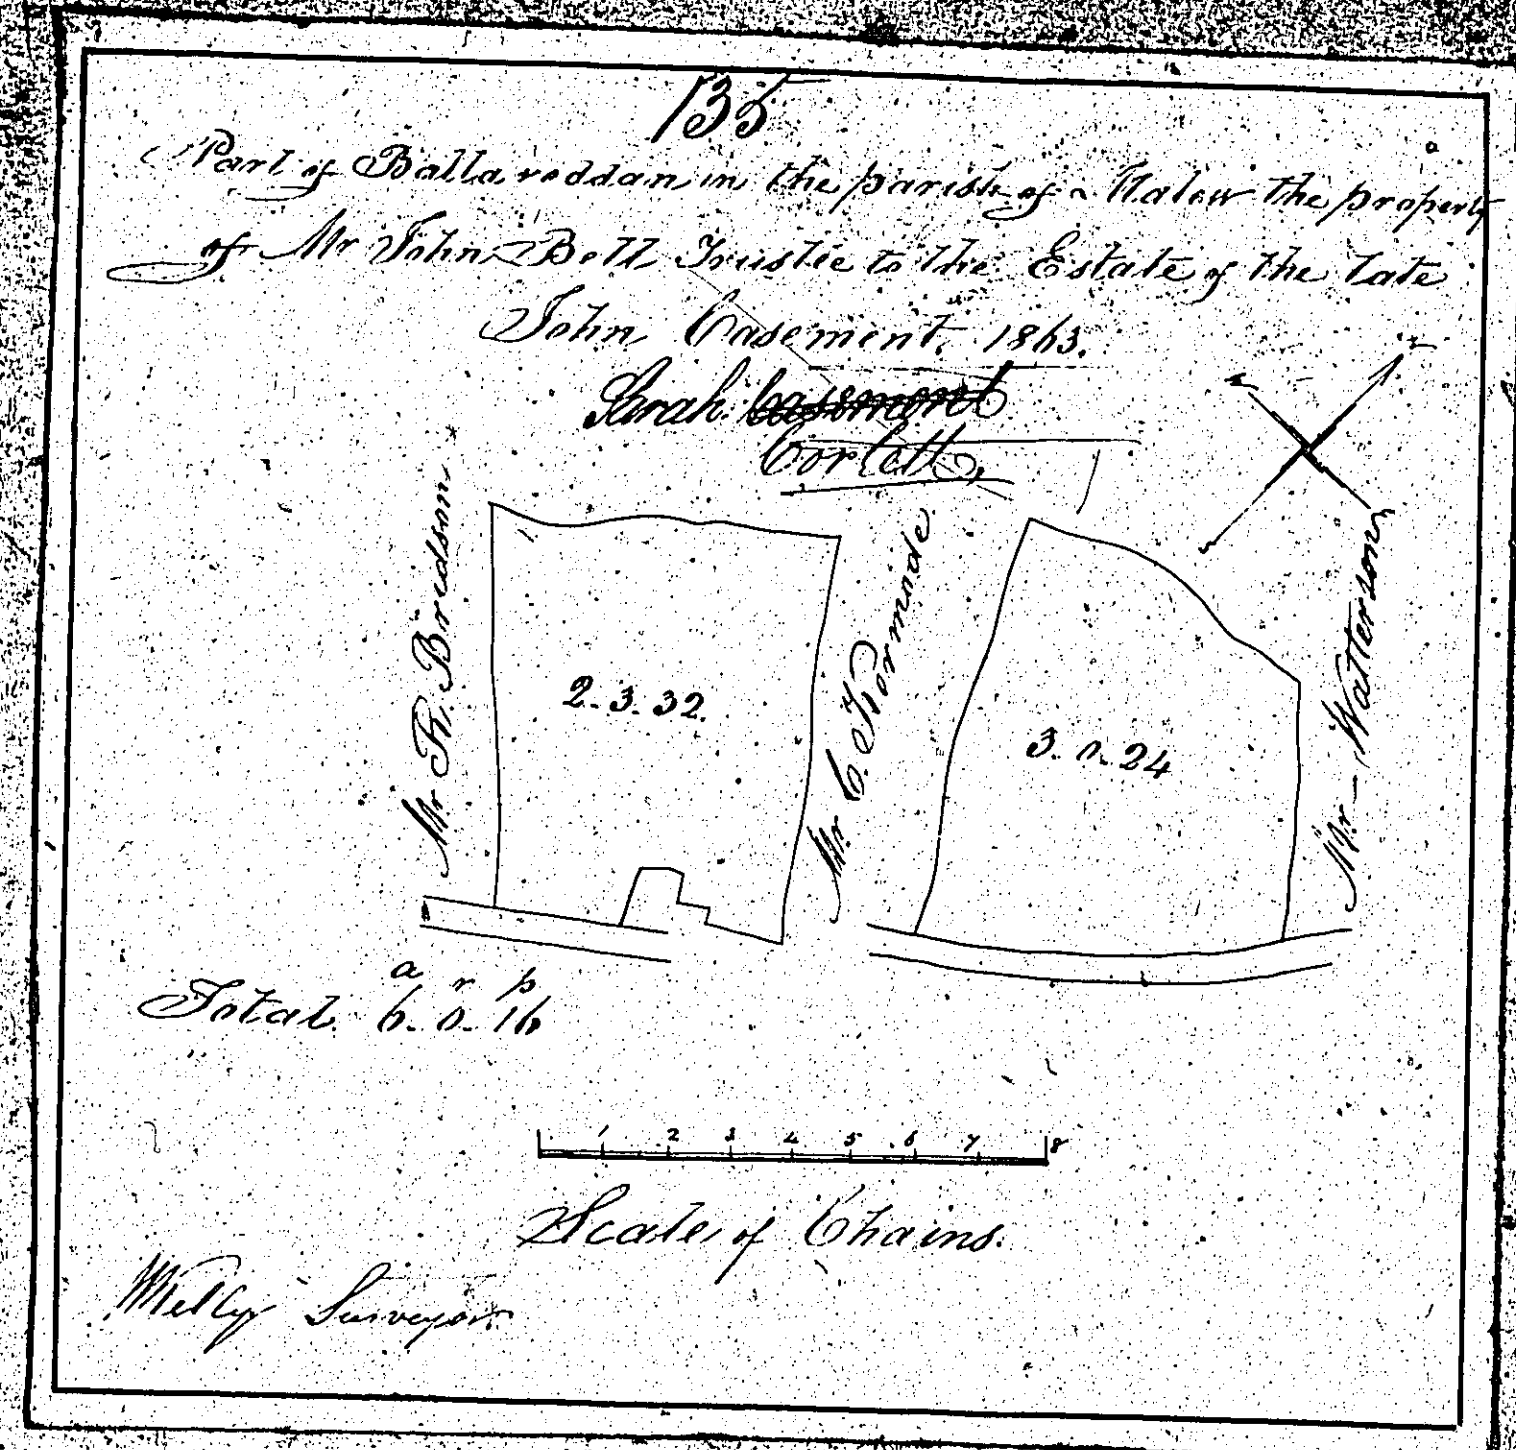 135
Part of Ballaveddan in the parish of Malew the property
of Mr John Bell Trustee to the Estate of the late
John Casement, 1863.
Sarah Casement
Corlett,
Mr R. Bridson
2. 3. 32.
Mr C. Kermode
3. 0. 24
Mr Watterson
a r p
Total 6. 0. 16
1 2 3 4 5 6 7 8
Scale of Chains.
Surveyor.